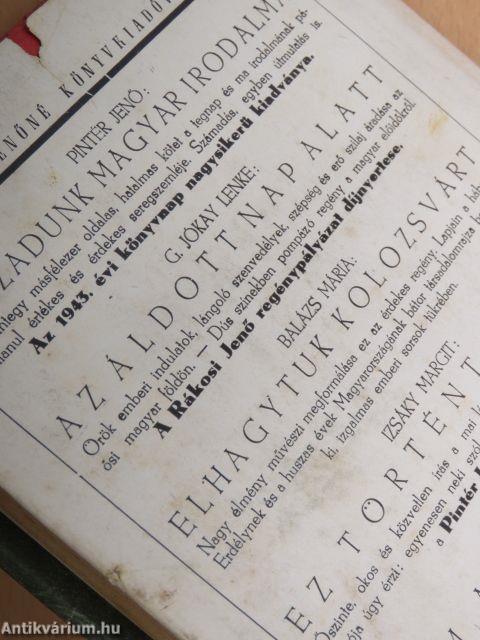 ENŐNÉ KÖNYVKIADÓV
PINTÉR JENŐ:
ZADUNK MAGYAR IRODALMA
másfélezer oldalas, hatalmas kötet a tegnap és ma irodalmának pá-
értékes és érdekes seregszemléje. Számadás, egyben útmutatás is.
Az 1943. évi könyvnap nagysikerű kiadványa.
G. JÓKAY LENKE:
AZ ÁLDOTT NAP ALATT
Örök emberi indulatok, lángoló szenvedélyek, szépség és erő szilaj áradása az
ősi magyar földön. — Dús színekben pompázó regény a magyar előidőkről.
A Rákosi Jenő regénypályázat díjnyertese.
BALÁZS MÁRIA:
ELHAGYTUK KOLOZSVÁRT
Nagy élmény művészi megformálása ez az érdekes regény. Lapjain a
Erdélynek és a huszas évek Magyarországának bátor társadalomrajza
ki, izgalmas emberi sorsok tükrében.
IZSÁKY MARGIT:
EZ TÖRTÉNT
szinte, okos és közvetlen írás a mai
úgy érzi: egyenesen neki szól
a Pintér
Antikvárium.hu